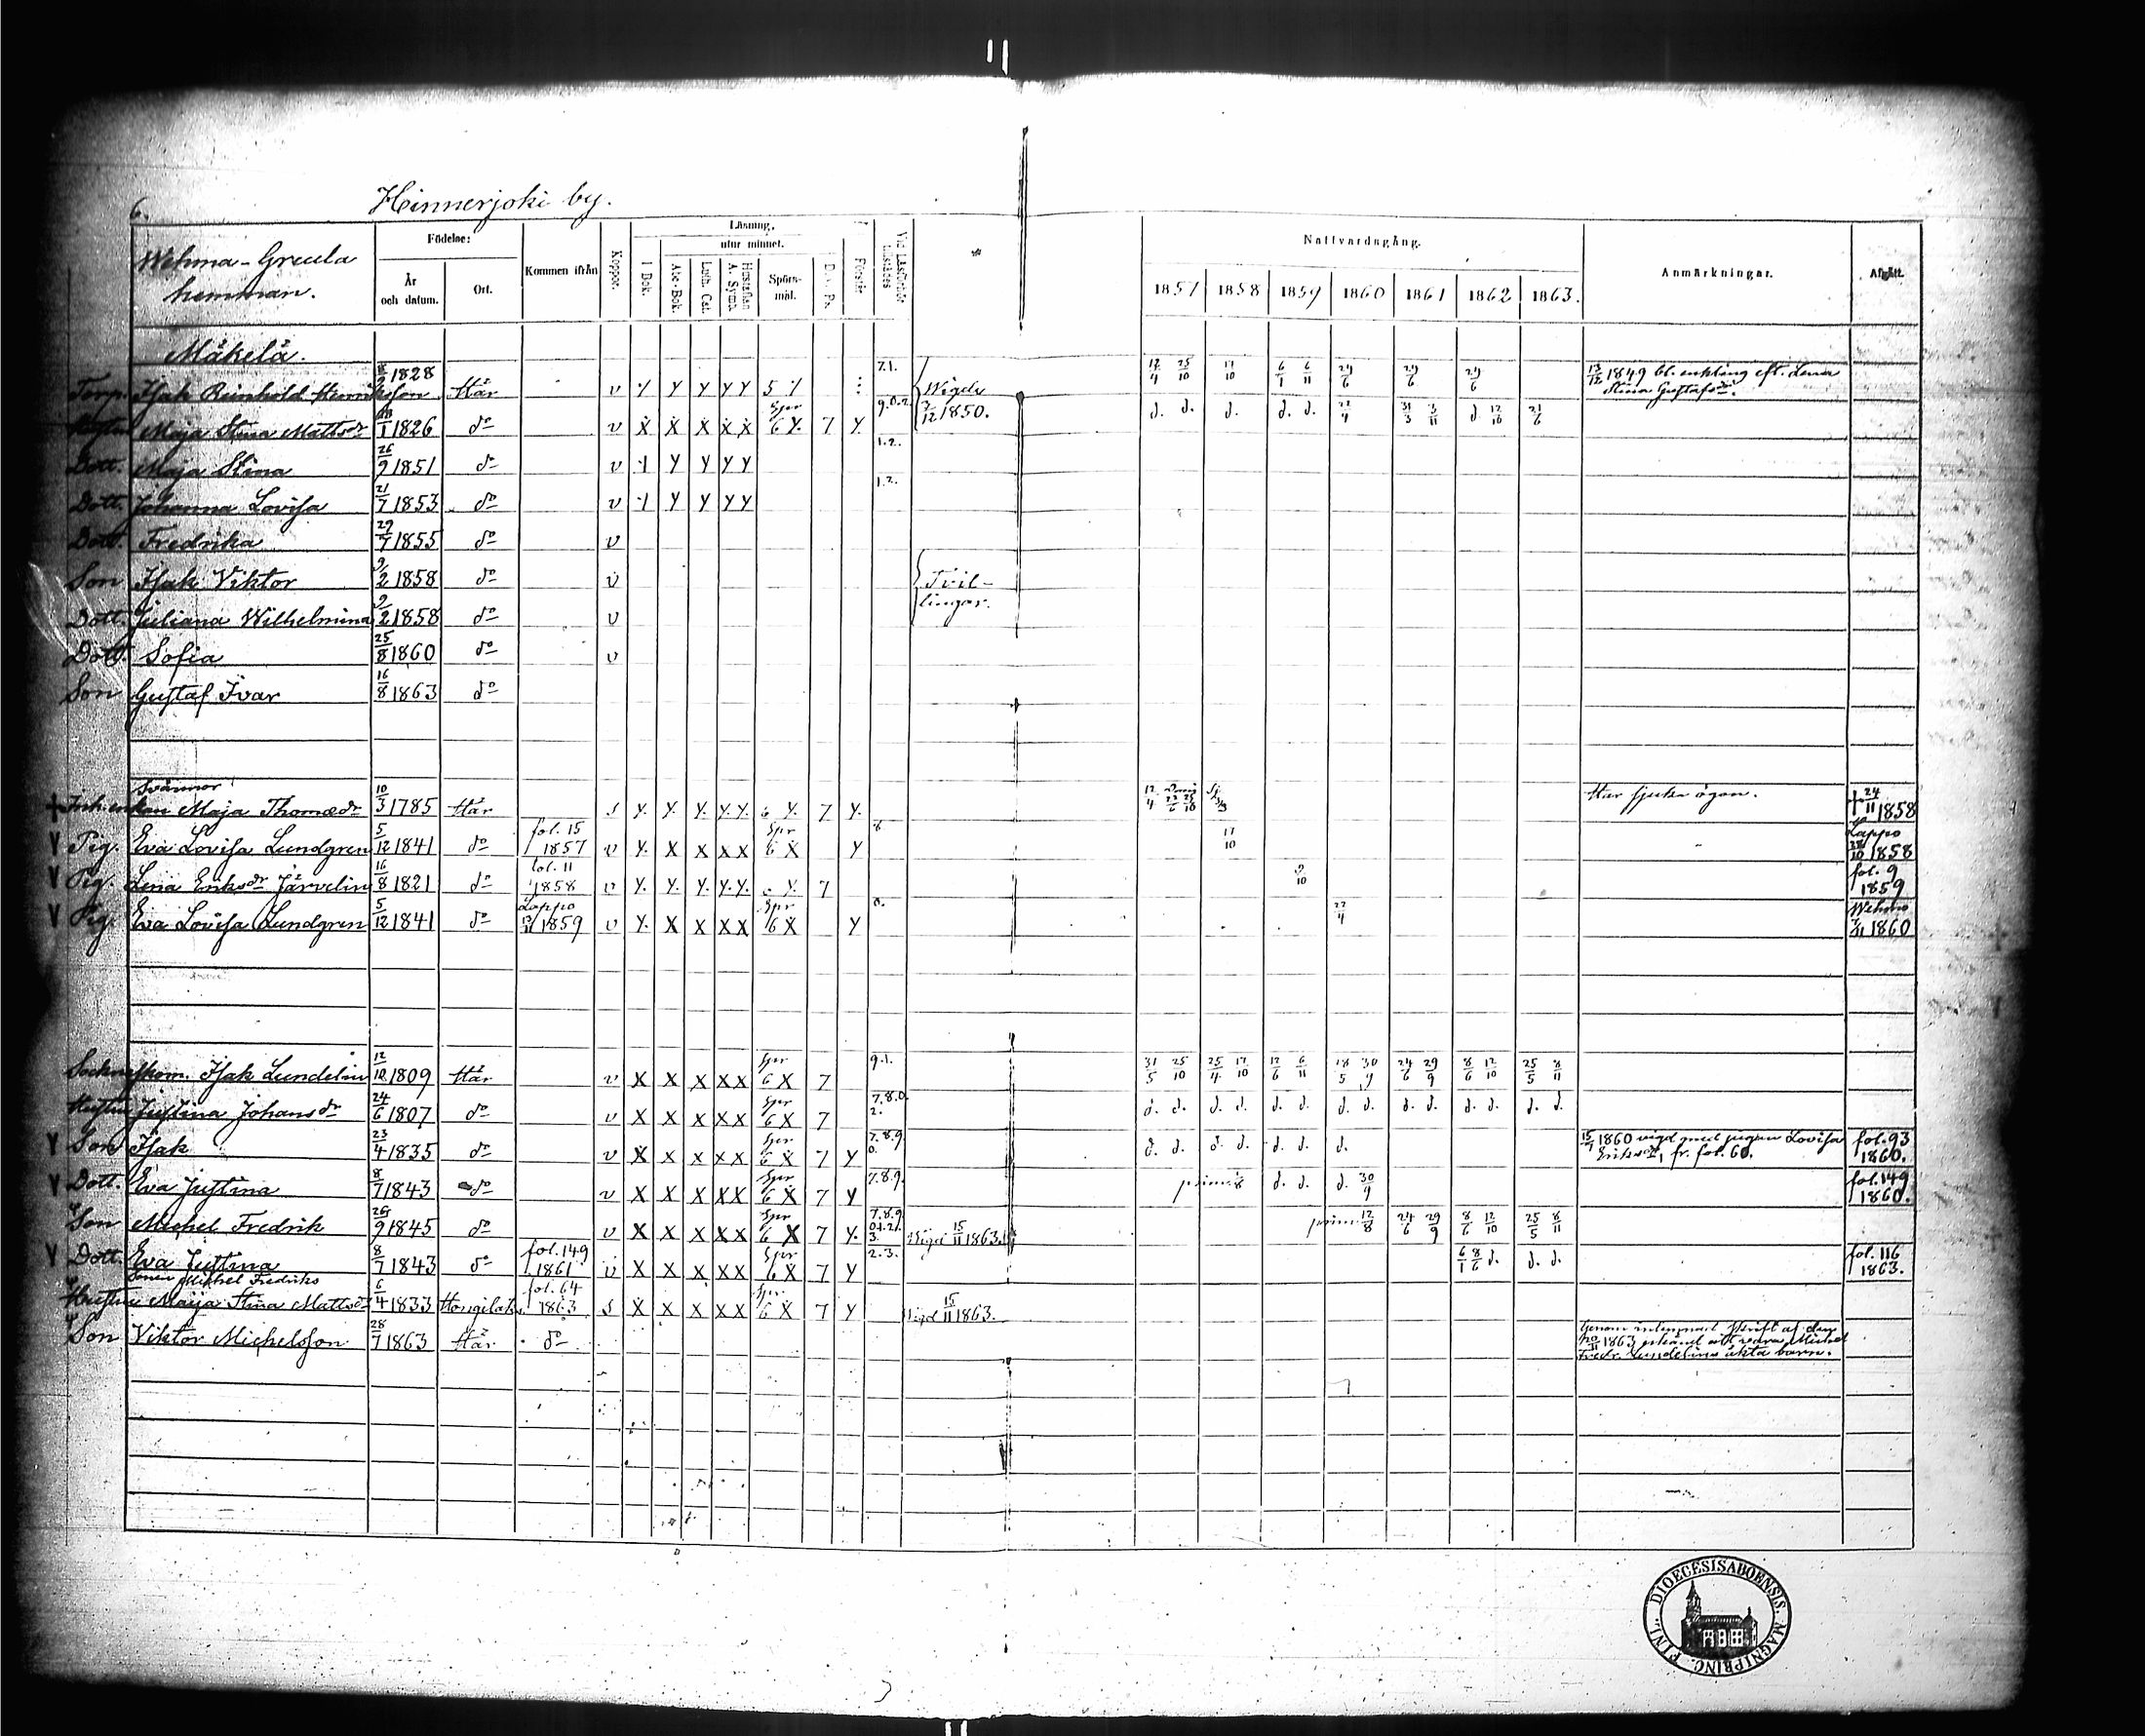 6. Hinnerjoki by.
Wehma-Greula hemman.
Födelse:
År och datum.
Ort.
Kommen ifrån
Koppor.
Läsning,
utur minnet.
I Bok.
Abc-Bok.
Luth. Cat.
Hustaflan A. Symb.
Spörs-mål.
D. Ps.
Förstår
Vid Läsförhör tillstädes
Nattvardsgång.
1857 1858 1859 1860 1861 1862 1863.
Anmärkningar.
Afgått.
Mäkelä.
Torp. Isak Reinhold Henriksson 1828 Här v 5 7.1. Wigde 12/4 25/10 17/10 6/1 6/11 24/6 13/12 1849 bl. enkling eft. Lena Stina Gustafsdr.
Hustru Maja Stina Mattsdr 1826 do v X X X X X Spr 6 Y. 7 Y. 9.0.2. /12 1850. d. d. d. d. d. 22/4 31/3 3/11 d 12/10 21/6
Dott. Maja Stina 26/9 1851 do v Y Y Y Y 1.2.
Dott. Johanna Lovisa 21/7 1853 do v Y Y Y Y 1.2.
Dott. Fredrika 29/7 1855 do v
Son Isak Viktor 9/2 1858 do v Tvil-
Dott. Juliana Wilhelmina 9/2 1858 do v lingar.
Dott. Sofia 25/8 1860 do v
Son Gustaf Ivar 16/8 1863 do
Svärmor
+ Inh.enkan Maja Thomædr 10/3 1785 Här s Y. Y. Y. Y. Y. 6 Y. 7 Y. 12/4 25/10 Har sjuka ögon. + 24/11 1858
V Pig. Eva Lovisa Lundgren 5/12 1841 do fol. 15 1857 v Y. X X X X Spr 6 X Y 8 17/10 Lappo 28/10 1858
V Pig. Lena Eriksdr Järvelin 16/8 1821 do fol. 11 1858 v Y. Y. Y. Y. Y. Y. 7 9/10 fol. 9 1859
V Pig. Eva Lovisa Lundgren 5/12 1841 do Lappo 13/11 1859 v Y. X X X X Spr 6 X Y 0. 22/4 Wehmo 1860
Sockneskom. Isak Lundelin 12/12 1809 Här v X X X X X Spr 6 X 7 9.1. 31/5 25/10 25/4 17/10 12/6 6/11 18/5 30/9 24/6 29/9 8/6 12/10 25/5 8/11
Hustru Justina Johansdr 24/6 1807 do v X X X X X Spr 6 X 7 7.8.0. 2. d. d. d. d. d. d. d. d. d. d. d. d. d. d.
V Son Isak 23/4 1835 do v X X X X X Spr 6 X 7 Y 7.8.9 0. d. d. d. d. d. d. d. 15/7 1860 vigd med pigan Lovisa Eriksdr, fr. fol. 60. fol. 93 1860.
V Dott. Eva Justina 8/7 1843 do v X X X X X Spr 6 X 7 Y 7.8.9. d. d. d. 30/9 fol. 149 1860.
Son Michel Fredrik 26/9 1845 do v X X X X X Spr 6 X 7 Y. 7.8.9 0.1.2. 3. Wigd 15/11 1863. 12/8 24/6 29/9 8/6 12/10 25/5 8/11
V Dott. Eva Justina 8/7 1843 do fol. 149 1861 v X X X X X Spr 6 X 7 Y 2.3. 6/1 8/6 d. d. d. fol. 116 1863.
Sonen Michel Fredriks
Hustru Maija Stina Mattsdr 6/4 1833 Hongilaks fol. 64 1863 s X X X X X Spr 6 X 7 Y Vigd 15/11 1863.
Son Viktor Michelsson 28/7 1863 Här do Genom inlemnad skrift af den 20/11 1863 erkänd att vara Michel Fredr. Lundelins äkta barn.
DIOECESISABOENSIS. MAGNI PRINC. FINL.